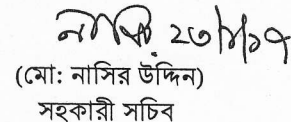 নাসির ২৩/৮/১৭
(মো: নাসির উদ্দিন)
সহকারী সচিব